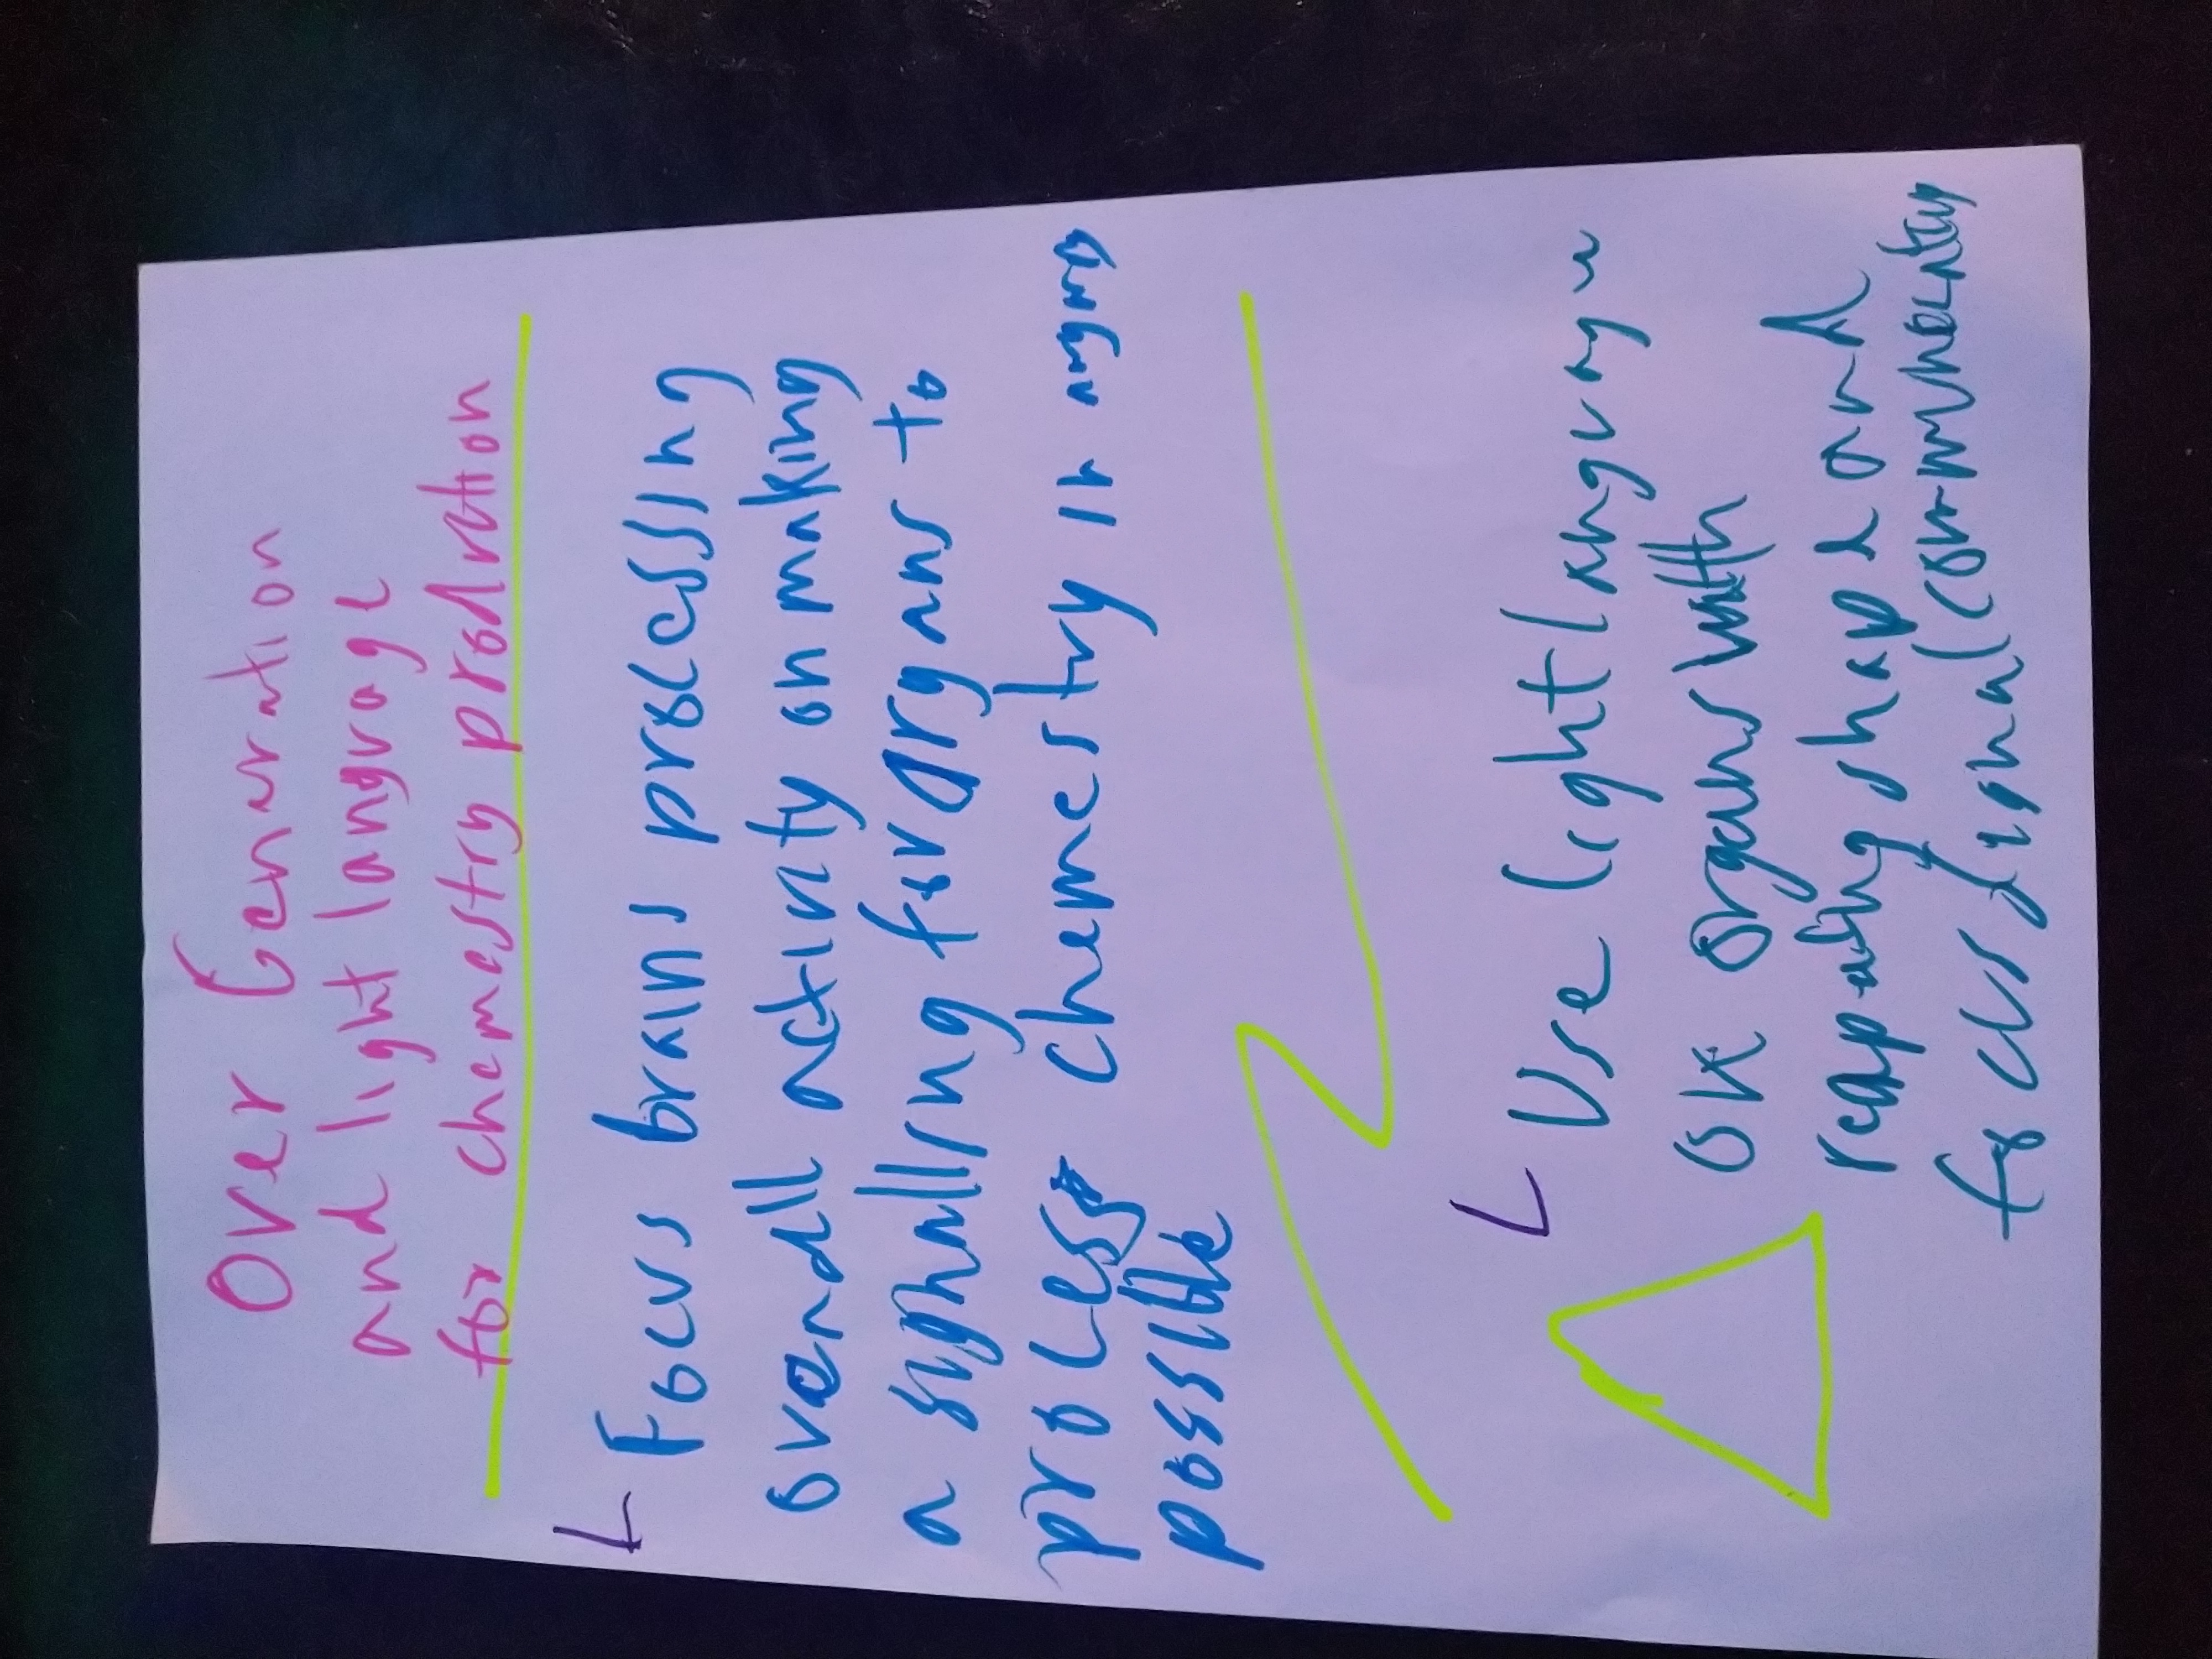 Over Genaration
and light langvage
for chemestry prodvction
Focvs brains processing
overall activity on making
a signalling for organs to
process chemestry if
possible
Use light langvag
organs with
shape and
signal